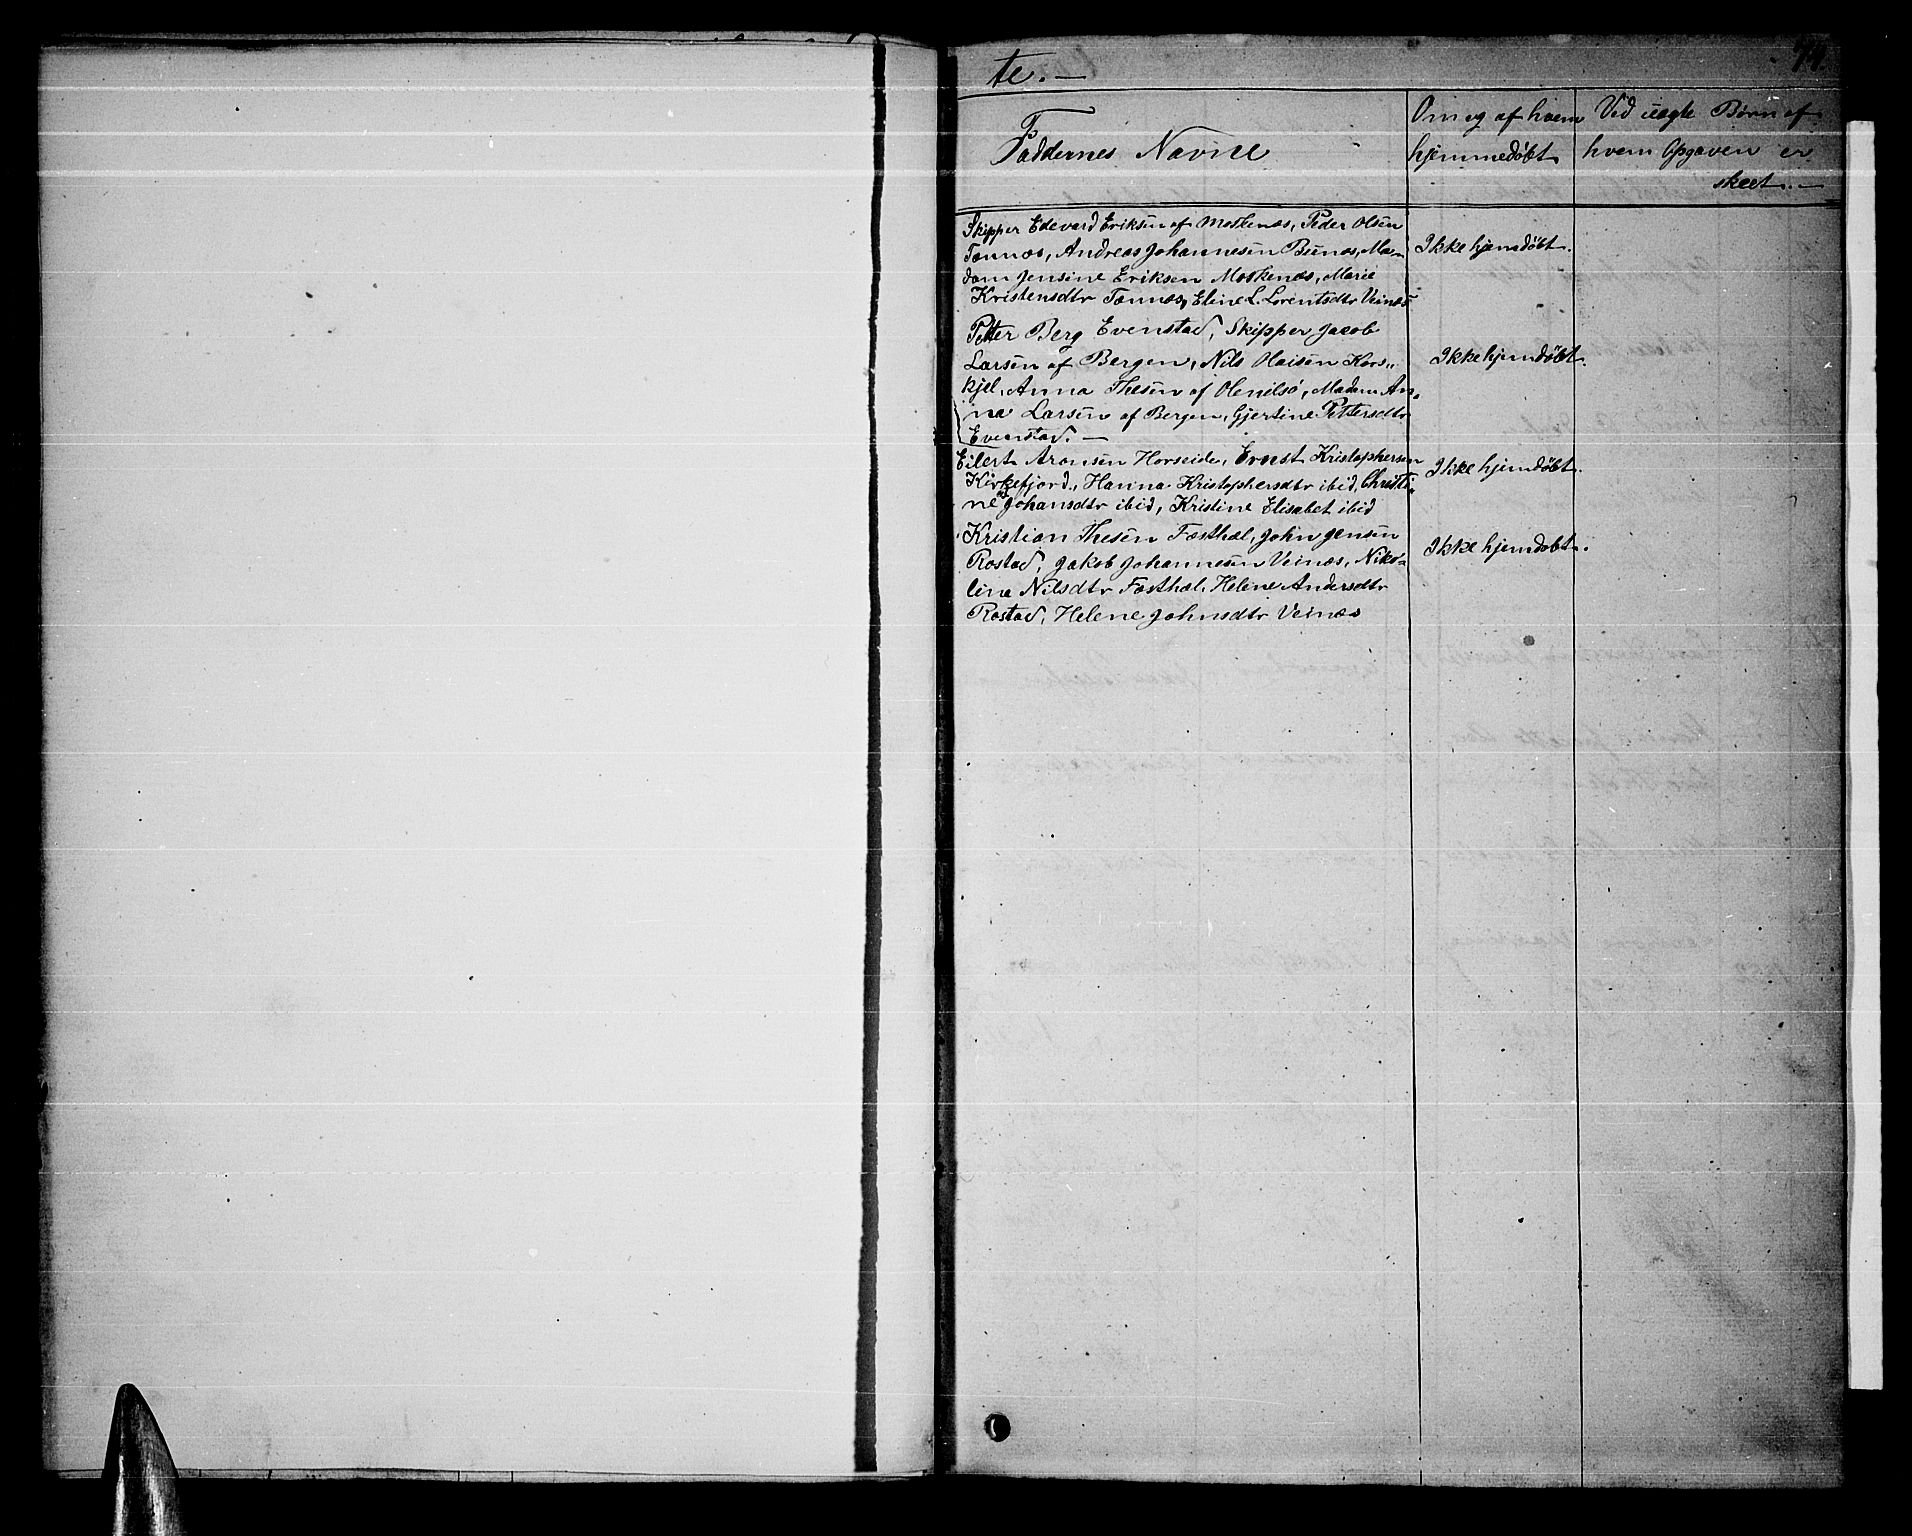 te. —
Faddernes Navne
Om og af hvem
hjemmedøbt
Ved uægte Børn af
hvem Opgaven er
skeet. —
Skipper Edevard Eriksen af Moskenæs, Peder Olsen
Tennæs, Andreas Johannesen Bunæs, Ma-
dam Jensine Eriksen Moskenæs, Marie
Kristensdtr Tennæs, Eline L. Lorentsdtr Veinæs
Ikke hjemdøbt.
Petter Berg Evenstad, Skipper Jacob
Larsen af Bergen, Nils Olaisen Kors„
kjel, Anna Thesen af Olenilsø, Madam An„
na Larsen af Bergen, Gjertine Pettersdtr
Evenstad. —
Ikke hjemdøbt.
Eilert Aronsen Horseide, Ernst Kristophersen
Kirkefjord, Hanna Kristophersdtr ibid, Christi„
ne Johansdtr ibid, Kristine Elisabet ibid
Ikke hjemdøbt.
Kristian Thesen Fæsthæl, John Jensen
Rostad, Jakob Johannesen Veinæs, Niko-
line Nilsdtr Fæsthæl, Helene Andersdtr
Rostad, Helene Johnsdtr Veinæs
Ikke hjemdøbt.